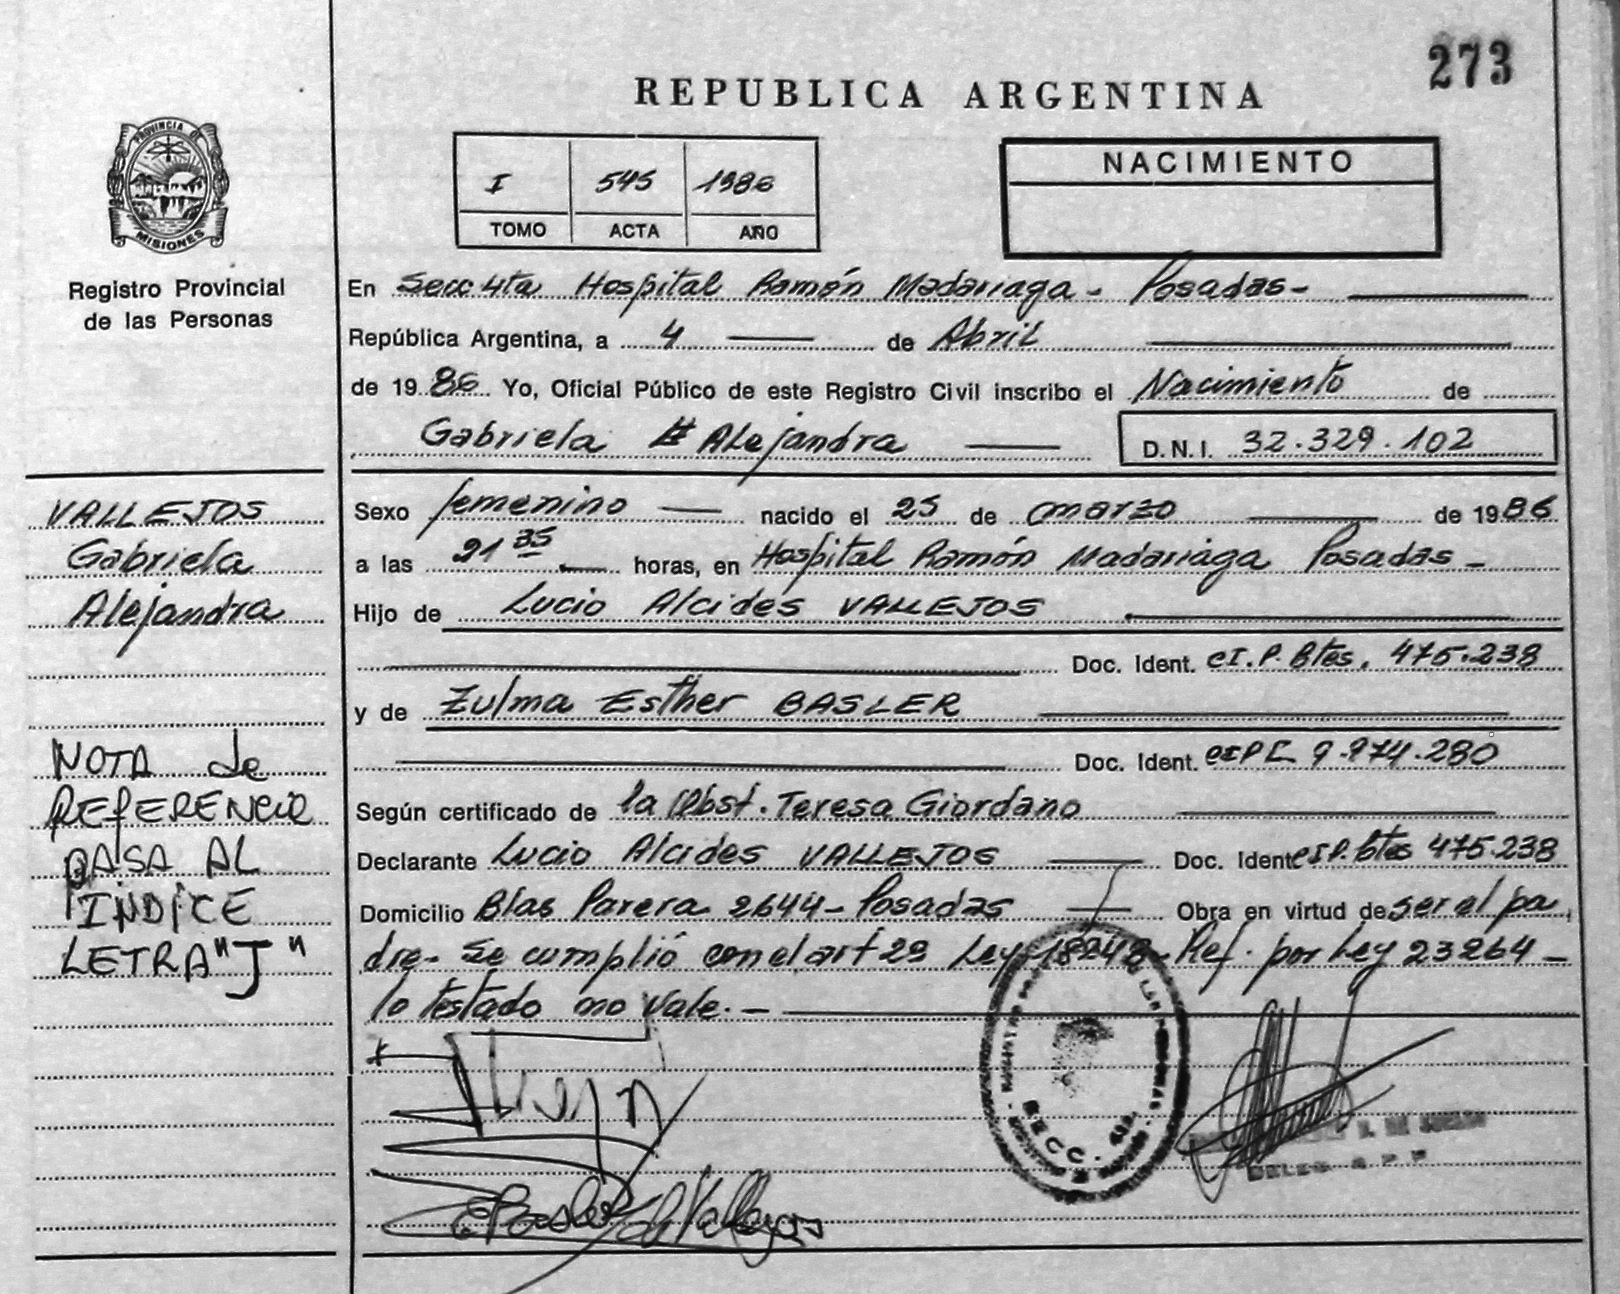 273
REPUBLICA ARGENTINA
PROVINCIA DE
MISIONES
Registro Provincial
de las Personas
I 545 1986
TOMO ACTA AÑO
NACIMIENTO
En Secc 4ta Hospital Ramón Madariaga - Posadas -
República Argentina, a 4 de Abril
de 1986 Yo, Oficial Público de este Registro Civil inscribo el Nacimiento de
Gabriela Alejandra D.N.I. 32.329.102
Sexo femenino nacido el 25 de marzo de 1986
a las 21 35 horas, en Hospital Ramón Madariaga Posadas -
Hijo de Lucio Alcides VALLEJOS
Doc. Ident. CI.P. Btes. 475.238
y de Zulma Esther BASLER
Doc. Ident. 9.974.280
Según certificado de la Obst. Teresa Giordano
Declarante Lucio Alcides VALLEJOS Doc. Ident CI.P. Btes 475.238
Domicilio Blas Parera 2644 - Posadas Obra en virtud de ser el pa
dre - Se cumplió con el art 29 Ley 18248 - Ref. por Ley 23264 -
lo testado no vale. -
VALLEJOS
Gabriela
Alejandra
NOTA de
REFERENCIA
PASA AL
INDICE
LETRA "J"
SECC. 4ta.